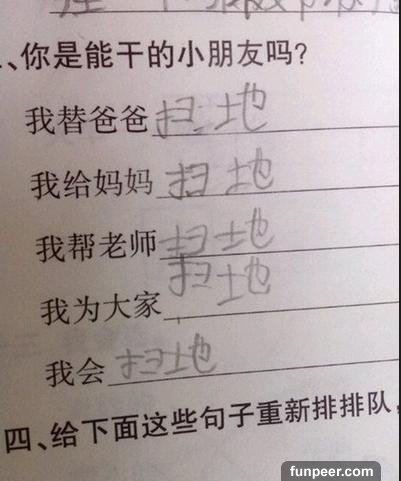 、你是能干的小朋友吗?
我替爸爸扫地
我给妈妈扫地
我帮老师扫地
我为大家扫地
我会扫地
四、给下面这些句子重新排排队,
funpeer.com